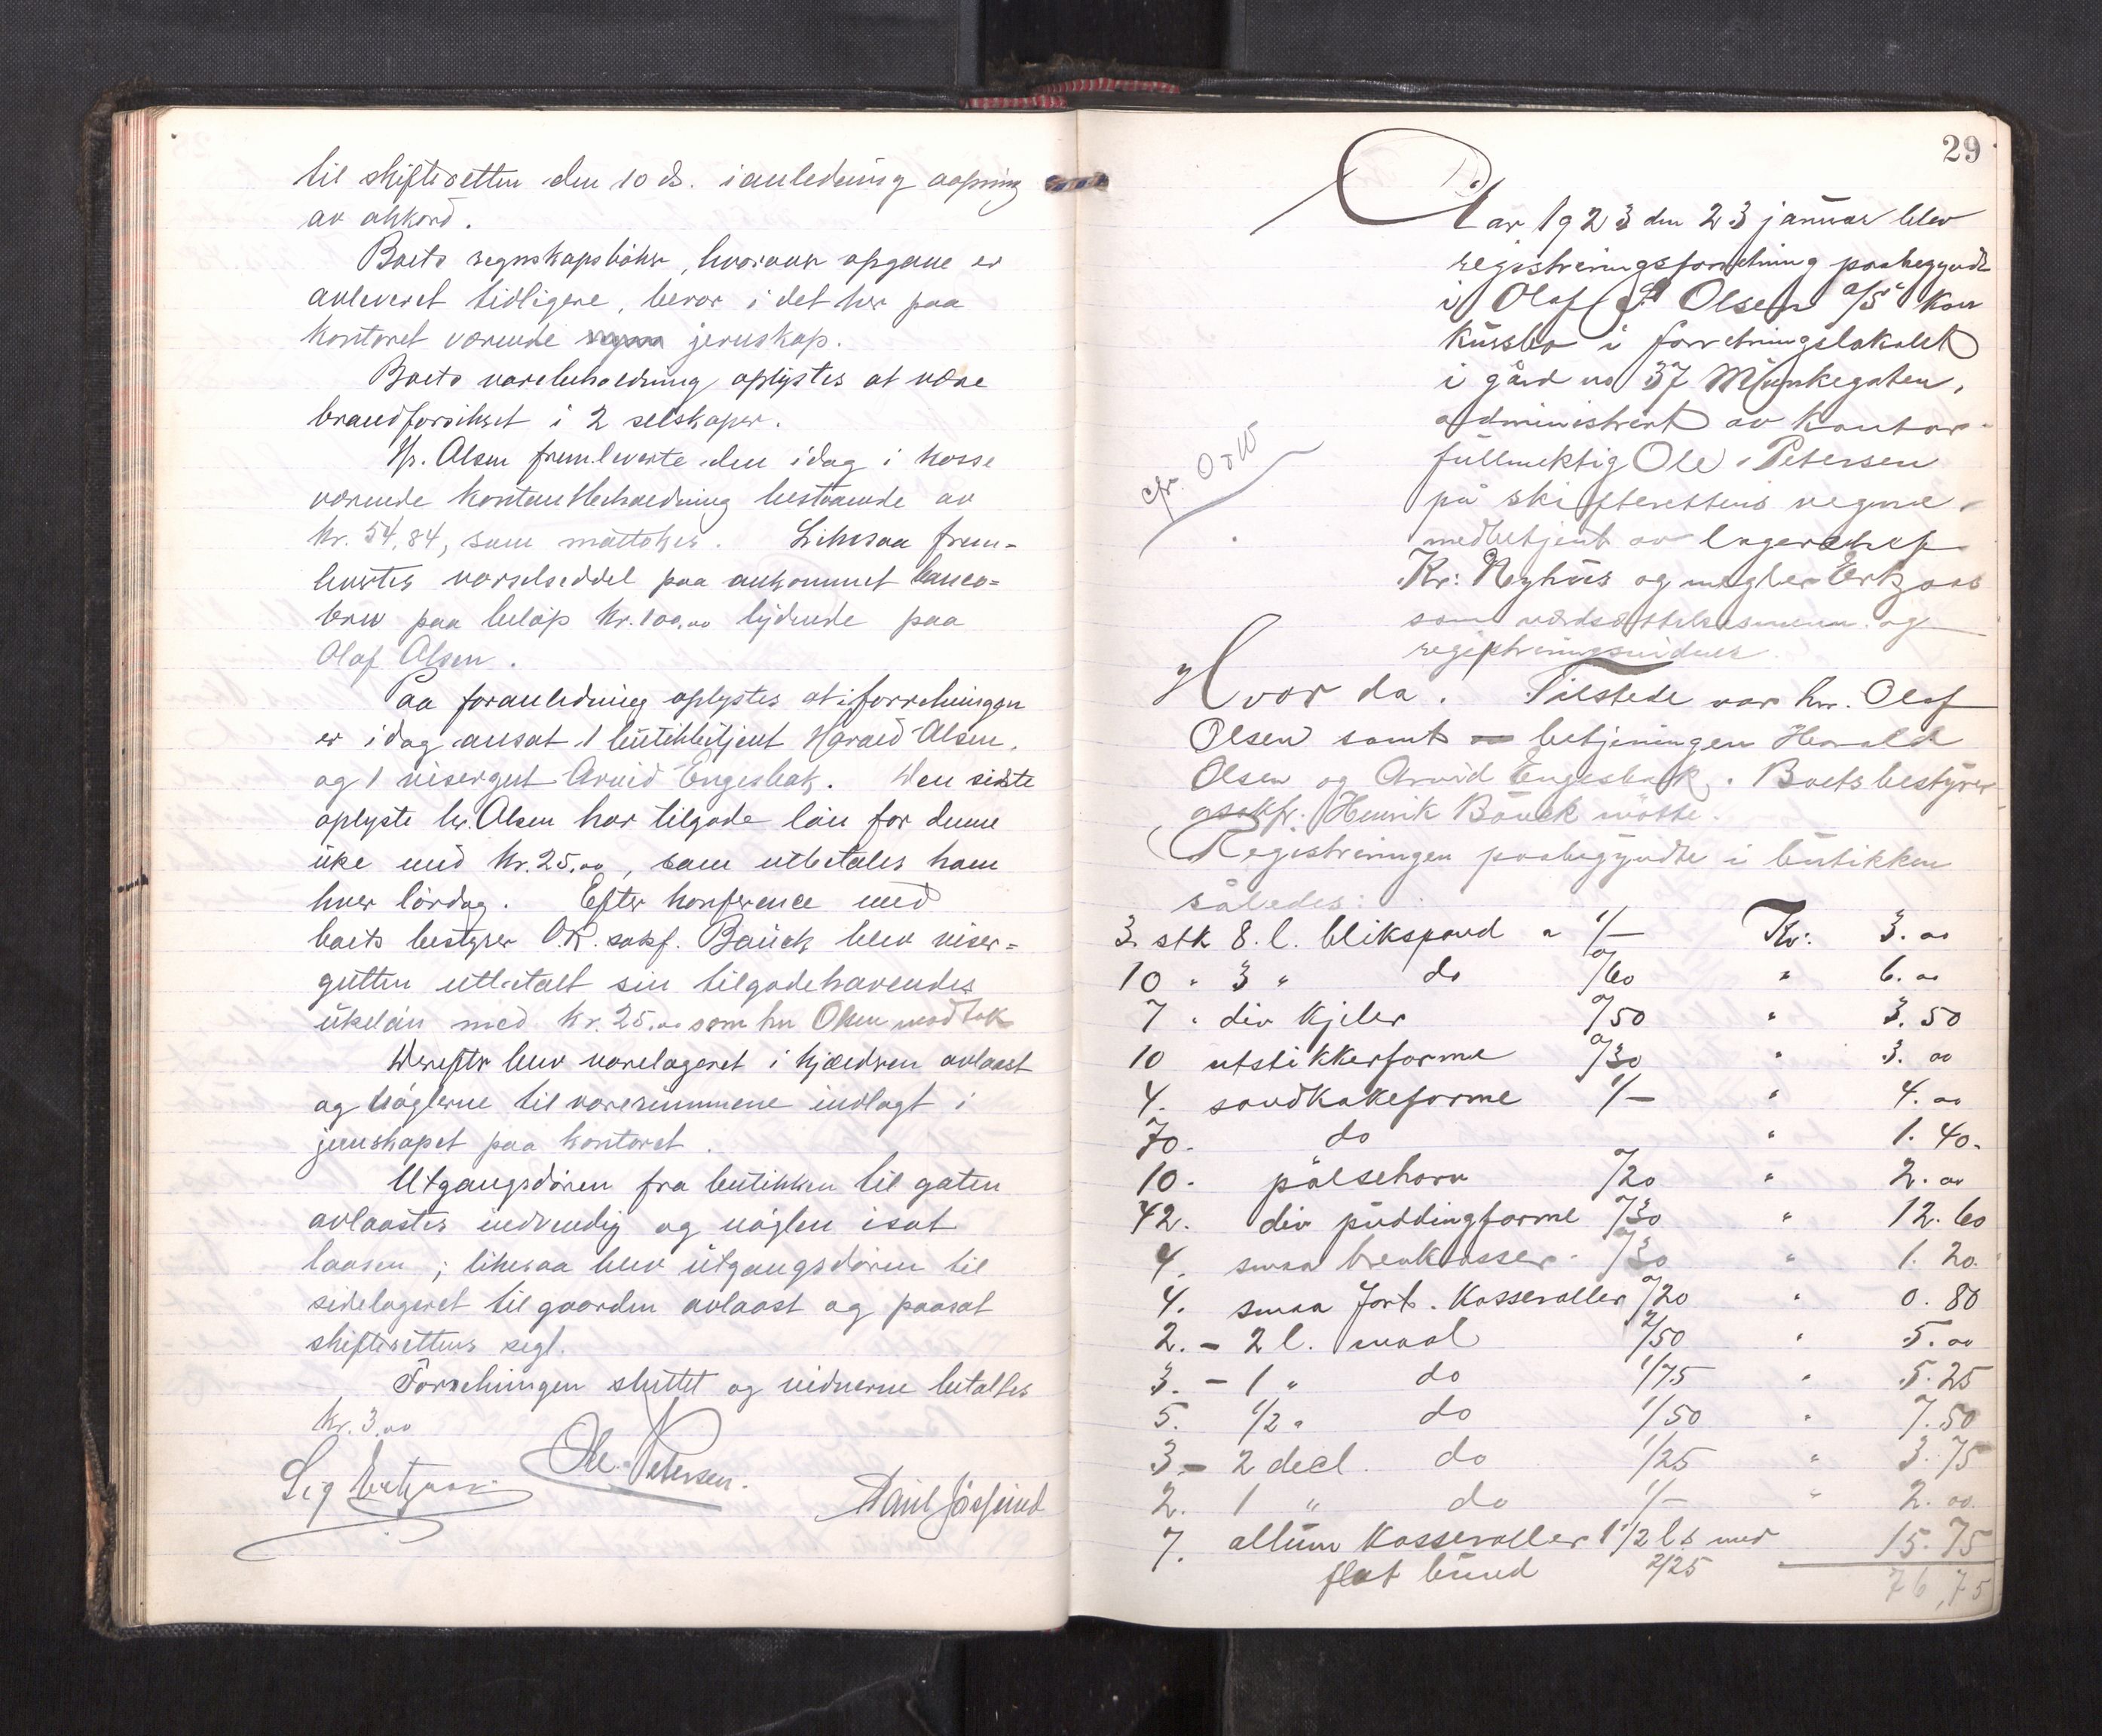 til skifteretten den 10 ds. i anledning aapning
av akkord.
Boets regnskapsbøker, hvorover opgave er
avleveret tidligere, beror i det her paa
kontoret værende jernskap.
Boets varebeholdning oplystes at være
brandforsikret i 2 selskaper.
Hr. Olsen fremleverte den idag i kasse
værende kontantbeholdning bestaaende av
kr. 54,84, som mottokes. Likesaa frem-
levertes varselseddel paa ankommet banco-
brev paa beløp kr. 100,00 lydende paa
Olaf Olsen.
Paa foranledning oplystes at i forretningen
er idag ansat 1 butikbetjent Harald Olsen,
og 1 visergut Arvid Engesbak. Den sidste
oplyste hr. Olsen har tilgode løn for denne
uke med kr. 25,00, som utbetales ham
hver lørdag. Efter konference med
boets bestyrer O.R. sakf. Bauck blev viser-
gutten utbetalt sin tilgodehavendes
ukeløn med kr. 25,00 som hr Olsen modtok
Derefter blev varelageret i kjælderen avlaast
og nøglerne til varerummene indlagt i
jernskapet paa kontoret.
Utgangsdøren fra butikken til gaten
avlaastes indvendig og nøglen isat
laasen; likesaa blev utgangsdøren til
sidelageret til gaarden avlaast og paasat
skifterettens segl.
Forretningen sluttet og vidnerne betaltes
kr. 3,00
Sig Ertzaas Ole Petersen.
29
Aar 1923 den 23 januar blev
registreringsforretning paabegyndt
i Olaf Olsen A/S' kon
kursbo i forretningslokalet
i gård no 37 Munkegaten,
administrert av kontor-
fullmektig Ole Petersen
på skifterettens vegne,
medbetjent av lagerchef
Kr: Nyhus og megler Ertzaas
som værdsættelsesmenn og
registreringsvidner.
cfr.
Hvor da. Tilstede var hr. Olaf
Olsen samt betjeningen Harald
Olsen og Arvid Engesbak. Boets bestyrer
osakfr. Henrik Bauck møtte.
Registreringen paabegyndte i butikken
således:
3. stk 8. l. blikspand a 1/- Kr: 3. 00
10 " 3 " do 0/60 " 6. 00
7 " div kjeler 0/50 " 3. 50
10 utstikkerforme 0/30 " 3. 00
4. sandkakeforme 1/- " 4. 00
70. do " 1. 40.
10. pølsehorn 0/20 " 2. 00
42. div puddingforme 0/30 " 12. 60
4. smaa 0/30 " 1. 20.
4. smaa fort. Kasseroller 0/20 " 0. 80
2. - 2 l. maal 2/50 " 5. 00
3. - 1 " do 1/75 " 5. 25
5. 1/2 " do 1/50 " 7. 50
3 - 2 decl. do 1/25 " 3. 75
2. 1 " do 1/- " 2. 00.
7. allum Kasseroller 1 1/2 l.s med 15. 75
flat bund 2/25 76,75